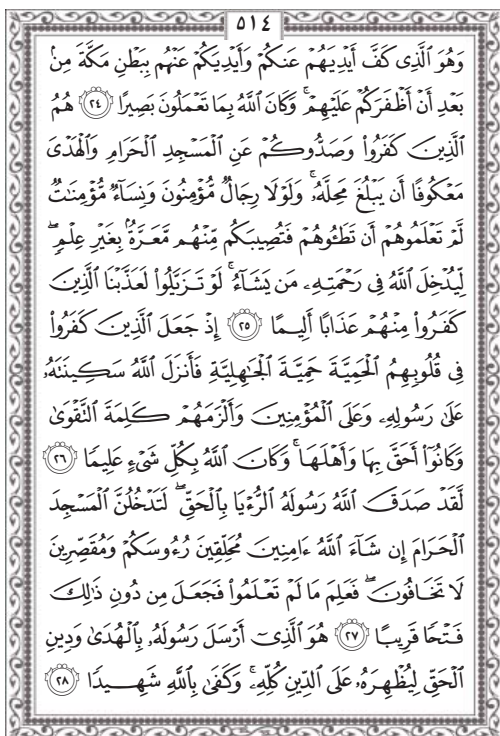 ٥١٤
وَهُوَ ٱلَّذِى كَفَّ أَيْدِيَهُمْ عَنكُمْ وَأَيْدِيَكُمْ عَنْهُم بِبَطْنِ مَكَّةَ مِنۢ
بَعْدِ أَنْ أَظْفَرَكُمْ عَلَيْهِمْ ۚ وَكَانَ ٱللَّهُ بِمَا تَعْمَلُونَ بَصِيرًا ﴿٢٤﴾ هُمُ
ٱلَّذِينَ كَفَرُوا۟ وَصَدُّوكُمْ عَنِ ٱلْمَسْجِدِ ٱلْحَرَامِ وَٱلْهَدْىَ
مَعْكُوفًا أَن يَبْلُغَ مَحِلَّهُۥ ۚ وَلَوْلَا رِجَالٌ مُّؤْمِنُونَ وَنِسَآءٌ مُّؤْمِنَـٰتٌ
لَّمْ تَعْلَمُوهُمْ أَن تَطَـُٔوهُمْ فَتُصِيبَكُم مِّنْهُم مَّعَرَّةٌۢ بِغَيْرِ عِلْمٍ ۖ
لِّيُدْخِلَ ٱللَّهُ فِى رَحْمَتِهِۦ مَن يَشَآءُ ۚ لَوْ تَزَيَّلُوا۟ لَعَذَّبْنَا ٱلَّذِينَ
كَفَرُوا۟ مِنْهُمْ عَذَابًا أَلِيمًا ﴿٢٥﴾ إِذْ جَعَلَ ٱلَّذِينَ كَفَرُوا۟
فِى قُلُوبِهِمُ ٱلْحَمِيَّةَ حَمِيَّةَ ٱلْجَـٰهِلِيَّةِ فَأَنزَلَ ٱللَّهُ سَكِينَتَهُۥ
عَلَىٰ رَسُولِهِۦ وَعَلَى ٱلْمُؤْمِنِينَ وَأَلْزَمَهُمْ كَلِمَةَ ٱلتَّقْوَىٰ
وَكَانُوٓا۟ أَحَقَّ بِهَا وَأَهْلَهَا ۚ وَكَانَ ٱللَّهُ بِكُلِّ شَىْءٍ عَلِيمًا ﴿٢٦﴾
لَّقَدْ صَدَقَ ٱللَّهُ رَسُولَهُ ٱلرُّءْيَا بِٱلْحَقِّ ۖ لَتَدْخُلُنَّ ٱلْمَسْجِدَ
ٱلْحَرَامَ إِن شَآءَ ٱللَّهُ ءَامِنِينَ مُحَلِّقِينَ رُءُوسَكُمْ وَمُقَصِّرِينَ
لَا تَخَافُونَ ۖ فَعَلِمَ مَا لَمْ تَعْلَمُوا۟ فَجَعَلَ مِن دُونِ ذَٰلِكَ
فَتْحًا قَرِيبًا ﴿٢٧﴾ هُوَ ٱلَّذِىٓ أَرْسَلَ رَسُولَهُۥ بِٱلْهُدَىٰ وَدِينِ
ٱلْحَقِّ لِيُظْهِرَهُۥ عَلَى ٱلدِّينِ كُلِّهِۦ ۚ وَكَفَىٰ بِٱللَّهِ شَهِيدًا ﴿٢٨﴾